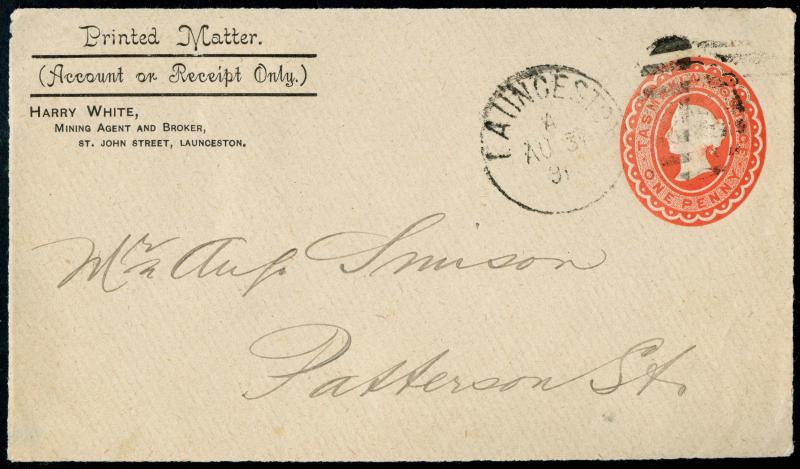 Printed Matter.
(Account or Receipt Only.)
HARRY WHITE,
MINING AGENT AND BROKER,
ST. JOHN STREET, LAUNCESTON.
LAUNCESTON
A
AU 31
91
TASMANIA
ONE PENNY
Mr Aug. Simson
Patterson St.